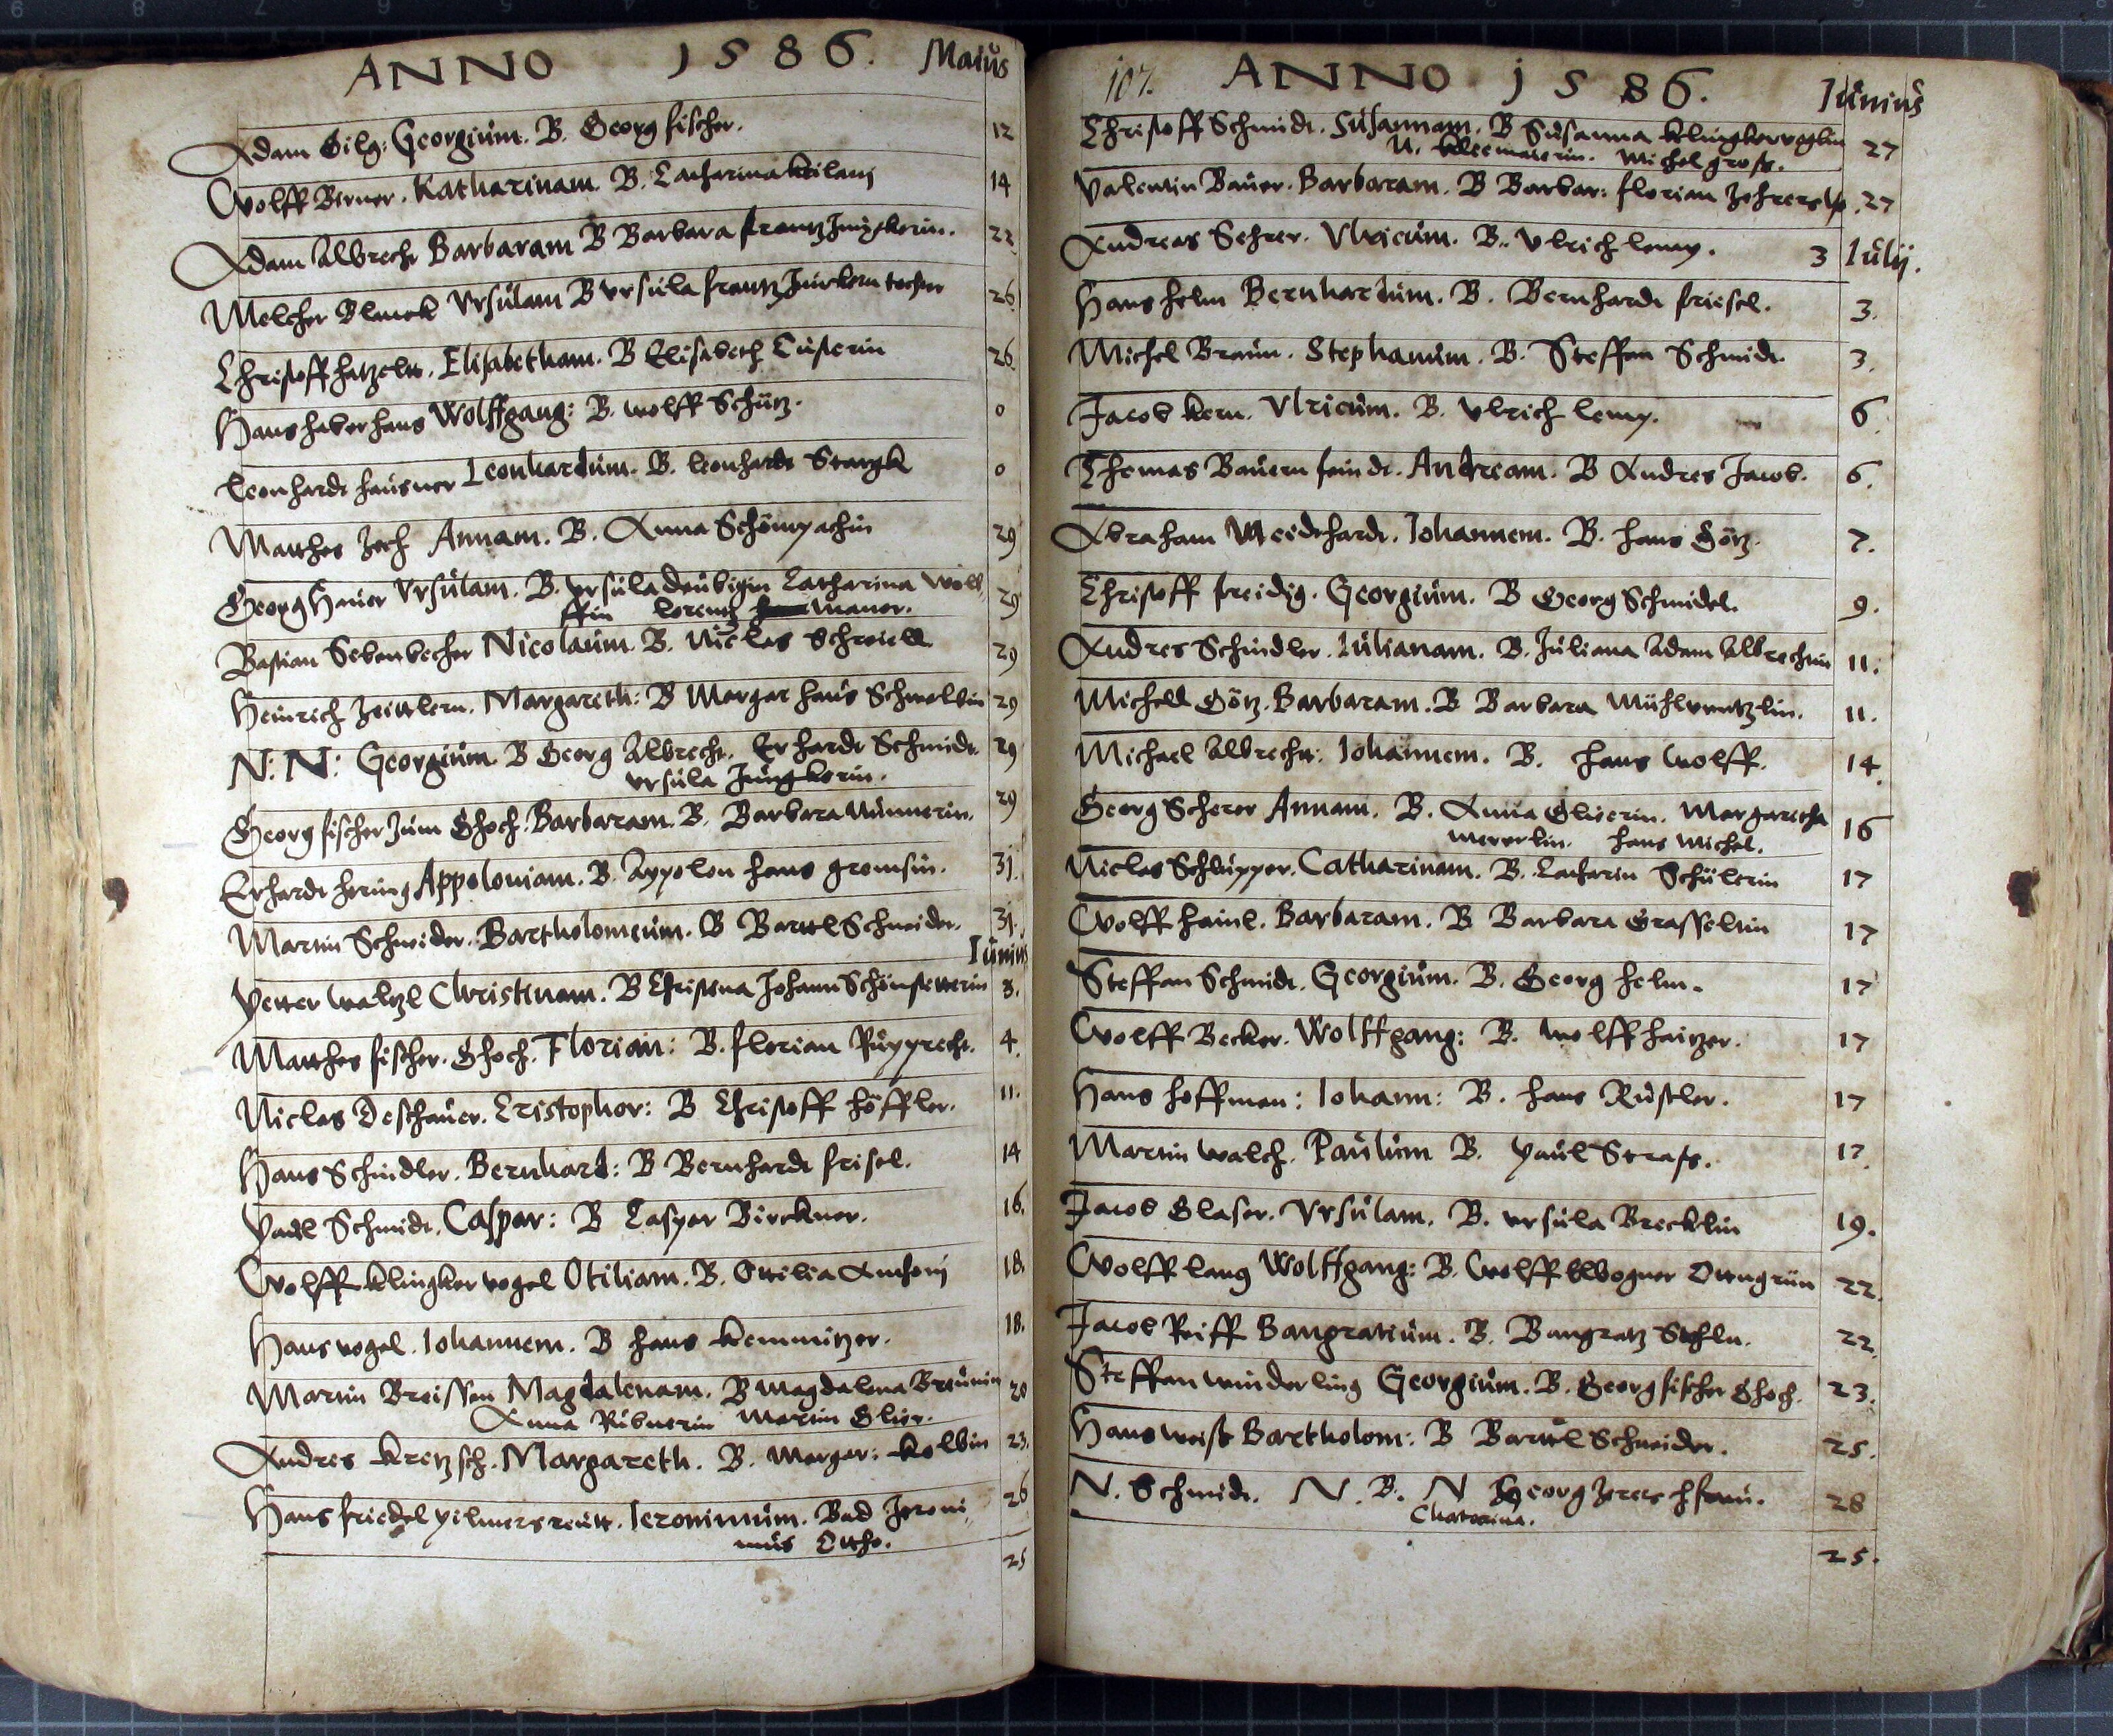 ANNO 1586. Maius
Adam Gilg: Georgium. B. Georg fischer. 12
Wolff Berner. Katharinam. B. Catharina Keilanj 14
Adam Albrecht Barbaram B Barbara frantz Jungkerin. 22
Melcher Blanck Ursulam B ursula frantz Junckern tochter 26
Christoff hatzelt. Elisabetham. B Elisabeth Custerin 26.
Hans haberhans Wolffgang: B. wolff Schütz. 0
Leonhardt hausner Leonhardum. B. leonhardt Stangk 0
Matthes Zech Annam. B. Anna Schönpachin 29
Georg Hauer Ursulam. B. ursula deubigin Catharina Wolf
ffin lorentz Maner. 29
Bastian Sebenbecher Nicolaum B. Niclas Schreiell 29
Heinrich Zeittlern. Margareth: B Margar hans Schwalbin 29
N: N: Georgium B Georg Albrecht. Erhardt Schmidt 29
ursula Jungkerin.
Georg fischer zum Ghoch. Barbaram. B. Barbara Nünnerin. 29
Erhardt hering Appoloniam. B. Appolon hans gromsin. 31.
Martin Schneider. Bartholomeum. B Barttl Schneider. 31.
Iunius
Petter waltzl Christinam. B Christina Johann Schönstetterin 3.
Matthes fischer. Ghoch. Florian: B. florian Rupprecht. 4.
Niclas Deschauer. Cristophor: B Christoff höffler. 11.
Hans Schindler. Bernhard: B Bernhardt frisel. 14
Paul Schmidt. Caspar: B Caspar Birckner. 16.
Wolff klingkervogel Otiliam. B. Ottilia Anthonj 18.
Hans vogel. Iohannem. B hans kemnitzer. 18.
Martin Breissen Magdalenam. B Magdalena Breunin 20
Anna Rübnerin Martin Glier.
Andres kretzsch. Margareth. B. Margar: kolbin 23.
Hans friedel pilmersreutt. Ieronimum. Bad Jeroni 26
mus Ottho.
25
107. ANNO 1586. Iunius
Christoff Schmidt. Susannam. B Susanna klingkervoglin 27
N. kleemaierin. Michel gross.
Valentin Bauer. Barbaram. B Barbar: florian Zehrers 27
Andreas Sehrer. Ulricum. B. Ulrich lemp. 3 Iulij.
Hans helm Bernhardum. B. Bernhardt friesel. 3.
Michel Braun. Stephanum. B. Steffan Schmidt 3.
Jacob kern. Ulricum. B. Ulrich lemp. 6.
Thomas Bauernfeindt. Andream. B Andres Jacob. 6.
Abraham Meidhardt. Iohannem. B. hans Götz. 7.
Christoff freidig. Georgium. B Georg Schmidel. 9.
Andres Schindler. Iulianam. B. Juliana Adam Albrechtin 11.
Michell Götz. Barbaram. B Barbara Mühlventzlin. 11.
Michael Albrecht: Iohannem. B. hans Wolff. 14.
Georg Scherer Annam. B. Anna Glierin. Margaretha 16
Meverlin. hans Michel.
Niclas Schlupper. Catharinam. B. Catharin Schülerin 17
Wolff hainl. Barbaram. B Barbara Grasseltin 17
Steffan Schmidt. Georgium. B. Georg helm. 17
Wolff Becker. Wolffgang: B. Wolff haitzer. 17
Hans hoffman: Iohann: B. hans Rüstler. 17
Martin walch. Paulum B. Paul Strass. 17.
Jacob Glaser. Ursulam. B. ursula Brecklin 19.
Wolff lang Wolffgang: B. Wolff Wogner Ottngrün 22.
Jacob Reiff Bangratium. B. Bangratz Stehln. 22.
Steffan winderling Georgium. B. Georg fischer Ghoch. 23.
Hans weiss Bartholom: B Barttl Schneider. 25.
N. Schmidt. N. B. N Georg hfrau. 28
Chatarina.
25.